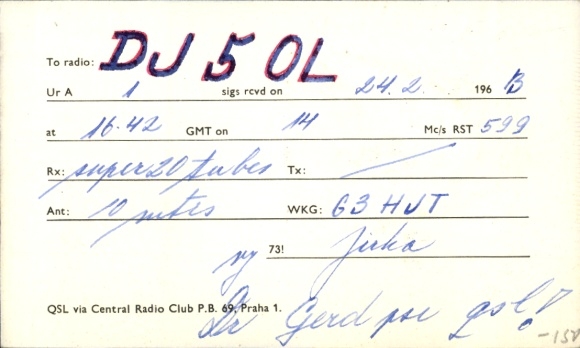 To radio: DJ5OL
Ur A 1 sigs rcvd on 24.2. 196
at 16.42 GMT on 14 Mc/s RST 599
Rx: super 20 tubes Tx: /
Ant: 10 mtes WKG: G3HJT
vy 73! Jirka
QSL via Central Radio Club P.B. 69, Praha 1.
Dr Gerd pse qsl!